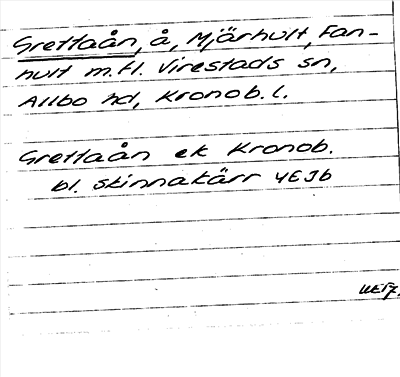 Grettaån, å, Mjärhult, Fan-
hult m.fl. Virestads sn,
Allbo hd, Kronob. l.
Grettaån ek Kronob.
bl. Skinnakärr 4E3b